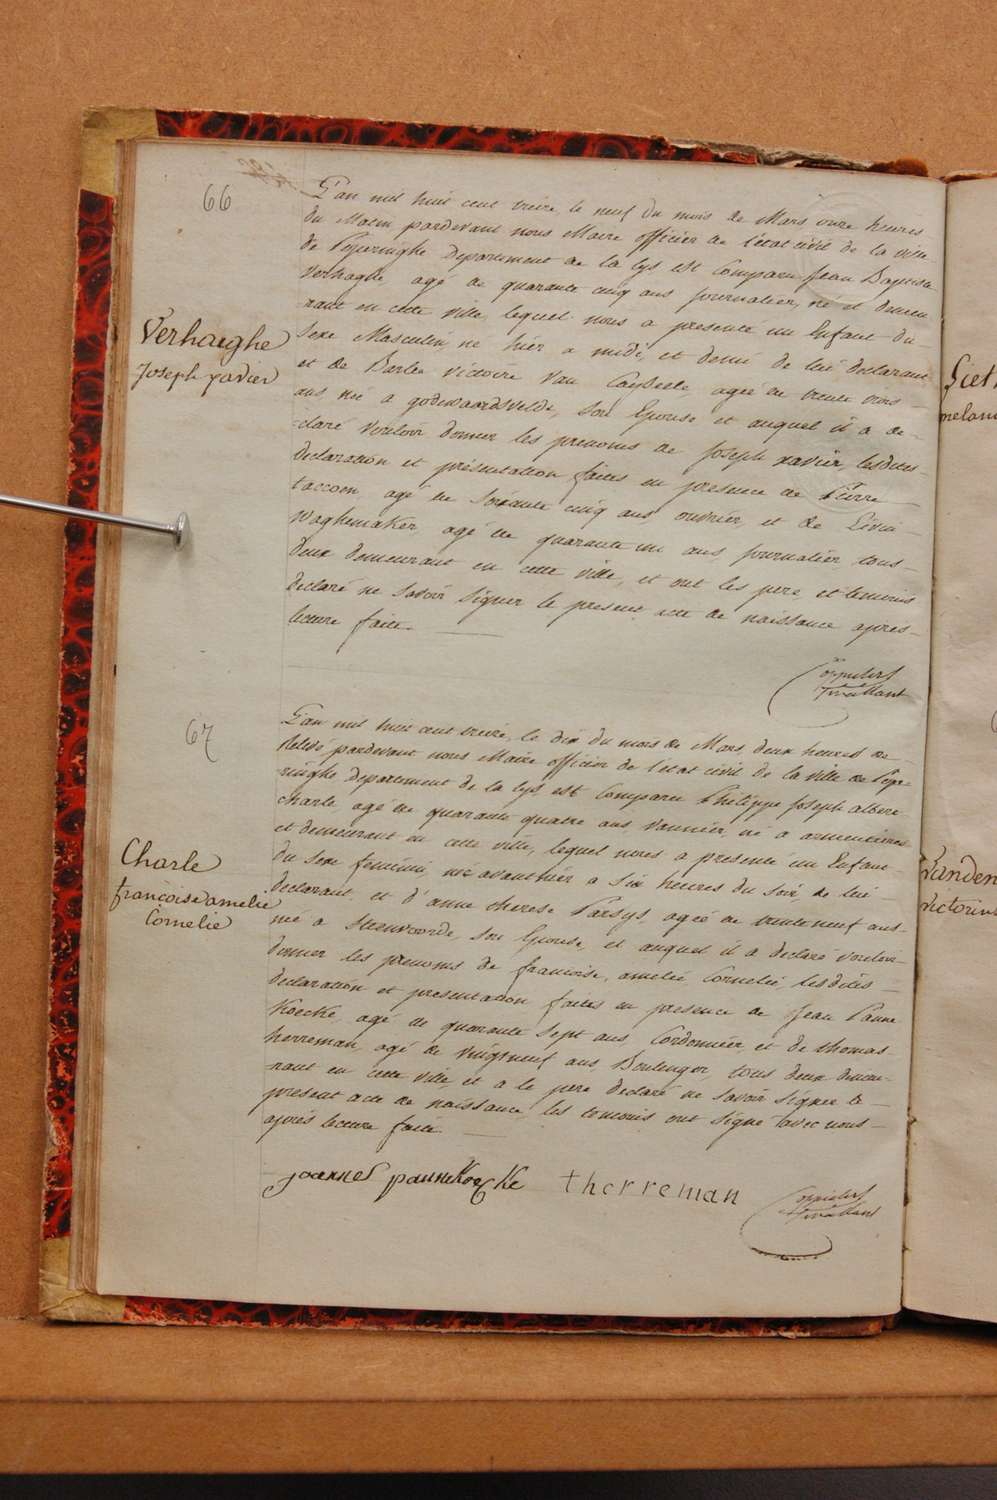 66
L'an mil huit cent treize le neuf du mois de Mars onze heures
du Matin pardevant nous Maire officier de l'état civil de la ville
de Poperinghe departement de la lys est Comparu Jean Baptiste
Verhaeghe agé de quarante cinq ans journalier, né et demeu
rant en cette ville, lequel nous a presenté un Enfant du
Verhaeghe
Joseph xavier
Sexe Masculin, né hier a midi, et demi de lui declarant
et de Barbe victoire Van Cayseele, agée de trente trois
ans née a godewaardsvelde, son Epouse et auquel il a de-
claré vouloir donner les prenoms de Joseph xavier, lesdites
declaration et présentation faites en presence de Pierre
taccoen, agé de soixante cinq ans ouvrier, et de Livin
Waghemaker, agé de quarante un ans, journalier tous
deux demeurant en cette ville, et ont les pere et temoins
declaré ne savoir signer le present acte de naissance apres
lecture faite.
67
L'an mil huit cent treize, le dix du mois de Mars, deux heures de
relevé pardevant nous Maire officier de l'etat civil de la ville de Pope
ringhe departement de la lys est Comparu Philippe Joseph albert
charle, agé de quarante quatre ans vannier, né a armentieres
et demeurant en cette ville, lequel nous a presenté un Enfant
Charle
françoise amelie
Cornelie
du sexe feminin, née avanthier a six heures du soir, de lui
declarant et d'anne therese Parsys, agée de trenteneuf ans
née a Steenvoorde, son Epouse, et auquel il a declaré vouloir
donner les prenoms de francoise, amelie Cornelie, lesdites
declaration et presentation faites en presence de Jean Panne
Koecke, agé de quarante sept ans, Cordonnier, et de thomas
herreman, agé de vingtneuf ans, Boulanger, tous deux demeu-
rant en cette ville, et a le pere declaré ne savoir signer le
present acte de naissance, les temoins ont signé avec nous
après lecture faite.
joannes pannekoeCke therreman